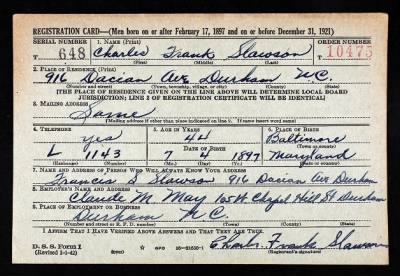 REGISTRATION CARD—(Men born on or after February 17, 1897 and on or before December 31, 1921)
SERIAL NUMBER 1. NAME (Print) ORDER NUMBER
T 648 Charles Frank Slawson T 10475
(First) (Middle) (Last)
2. PLACE OF RESIDENCE (Print)
916 Dacian Ave Durham N.C.
(Number and street) (Town, township, village, or city) (County) (State)
[THE PLACE OF RESIDENCE GIVEN ON THE LINE ABOVE WILL DETERMINE LOCAL BOARD
JURISDICTION; LINE 2 OF REGISTRATION CERTIFICATE WILL BE IDENTICAL]
3. MAILING ADDRESS
Same
(Mailing address if other than place indicated on line 2. If same insert word same)
4. TELEPHONE 5. AGE IN YEARS 6. PLACE OF BIRTH
yes 44 Baltimore
DATE OF BIRTH (Town or county)
L 1143 7 4 1897 Maryland
(Exchange) (Number) (Mo.) (Day) (Yr.) (State or country)
7. NAME AND ADDRESS OF PERSON WHO WILL ALWAYS KNOW YOUR ADDRESS
Frances S Slawson 916 Dacian Ave Durham
8. EMPLOYER'S NAME AND ADDRESS
Claude M. May 105 W. Chapel Hill St Durham
9. PLACE OF EMPLOYMENT OR BUSINESS
Durham N.C.
(Number and street or R. F. D. number) (Town) (County) (State)
I AFFIRM THAT I HAVE VERIFIED ABOVE ANSWERS AND THAT THEY ARE TRUE.
D. S. S. Form 1
(Revised 1-1-42) (over) GPO 16—21630-1 Charles Frank Slawson
(Registrant's signature)